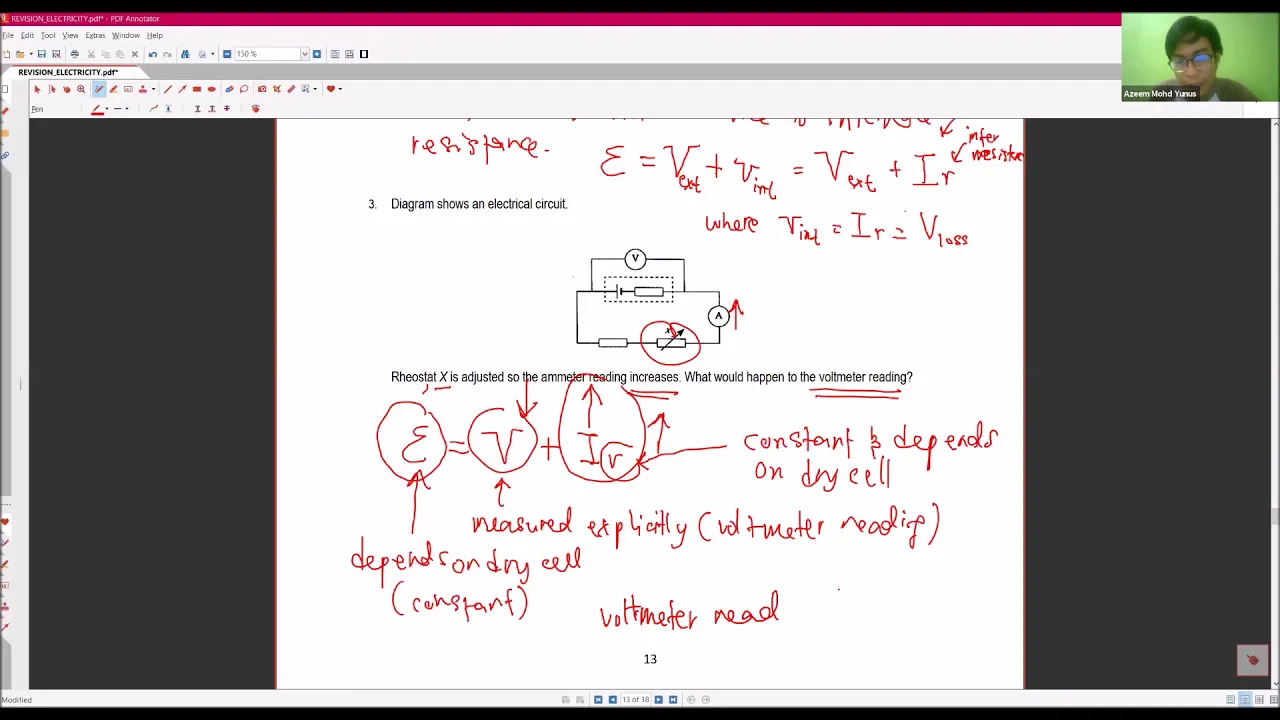 REVISION_ELECTRICITY.pdf* - PDF Annotator
File Edit Tool View Extras Window Help
150 %
REVISION_ELECTRICITY.pdf*
Pen
Azeem Mohd Yunus
resistance.
ε = V_ext + v_int = V_ext + Ir
where v_int = Ir = V_loss
3. Diagram shows an electrical circuit.
V
A
X
Rheostat X is adjusted so the ammeter reading increases. What would happen to the voltmeter reading?
ε = V + Ir
constant & depends
on dry cell
measured explicitly (voltmeter reading)
depends on dry cell
(constant)
voltmeter read
13
Modified
13 of 18